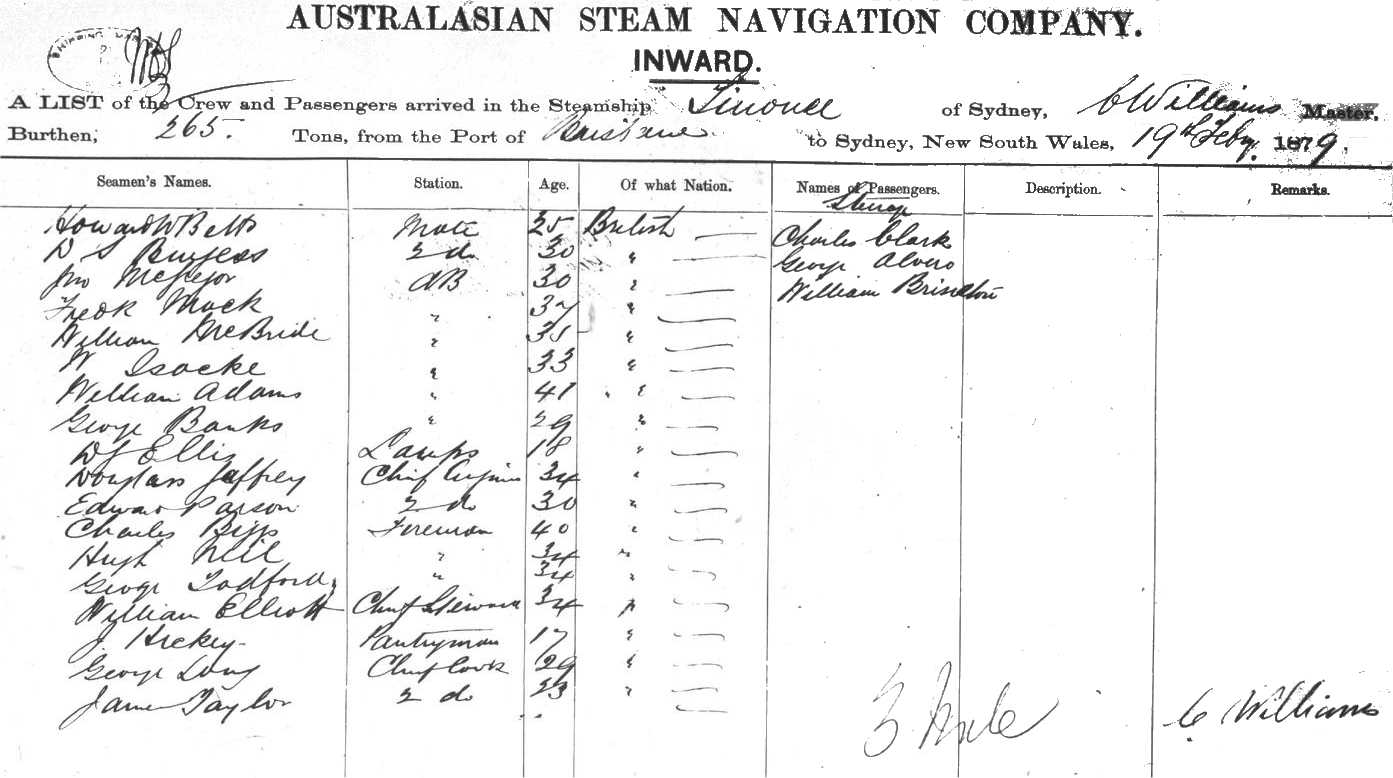 AUSTRALASIAN STEAM NAVIGATION COMPANY.
INWARD.
A LIST of the Crew and Passengers arrived in the Steamship of Sydney, C Williams Master,
Burthen, 265. Tons, from the Port of Brisbane to Sydney, New South Wales, 19th Feby. 1879.
Seamen's Names. Station. Age. Of what Nation. Names of Passengers. Description. Remarks.
Steerage
Howard W Betts Mate 25 British Charles Clark
D S Burgess 2 do 30 " George
Jno McGregor AB 30 " William
Fredk Mack " 37 "
William McBride " 35 "
W Isacke " 33 "
William Adams " 41 "
George Banks " 29 "
D J Ellis Lamps 18 "
Douglass Jaffrey Chief Engineer 34 "
Edward Parson 2 do 30 "
Charles Fireman 40 "
Hugh Neil " 34 "
George " 34 "
William Elliott Chief Steward 34 "
J. Hickey Pantryman 17 "
George Long Chief Cook 29 "
James Taylor 2 do 23 "
3
C Williams